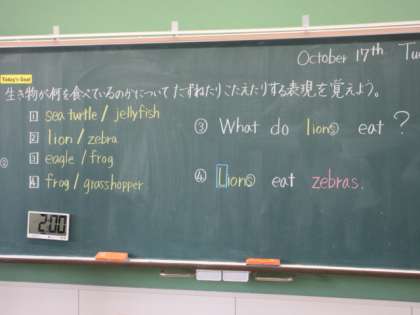 October 17th Tue
Today's Goal
生き物が何を食べているのかについて たずねたりこたえたりする表現を覚えよう。
1 sea turtle / jellyfish
2 lion / zebra
3 eagle / frog
4 frog / grasshopper
③ What do lions eat ?
④ Lions eat zebras.
2:00